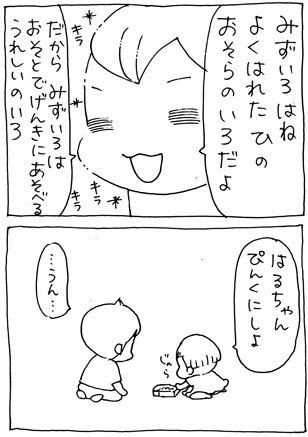 みずいろはね
よくはれたひの
おそらのいろだよ
キラ
キラ
キラ
だから みずいろは
おそとでげんきにあそべる
うれしいのいろ
はるちゃん
ぴんくにしよ
じゃら
…うん…